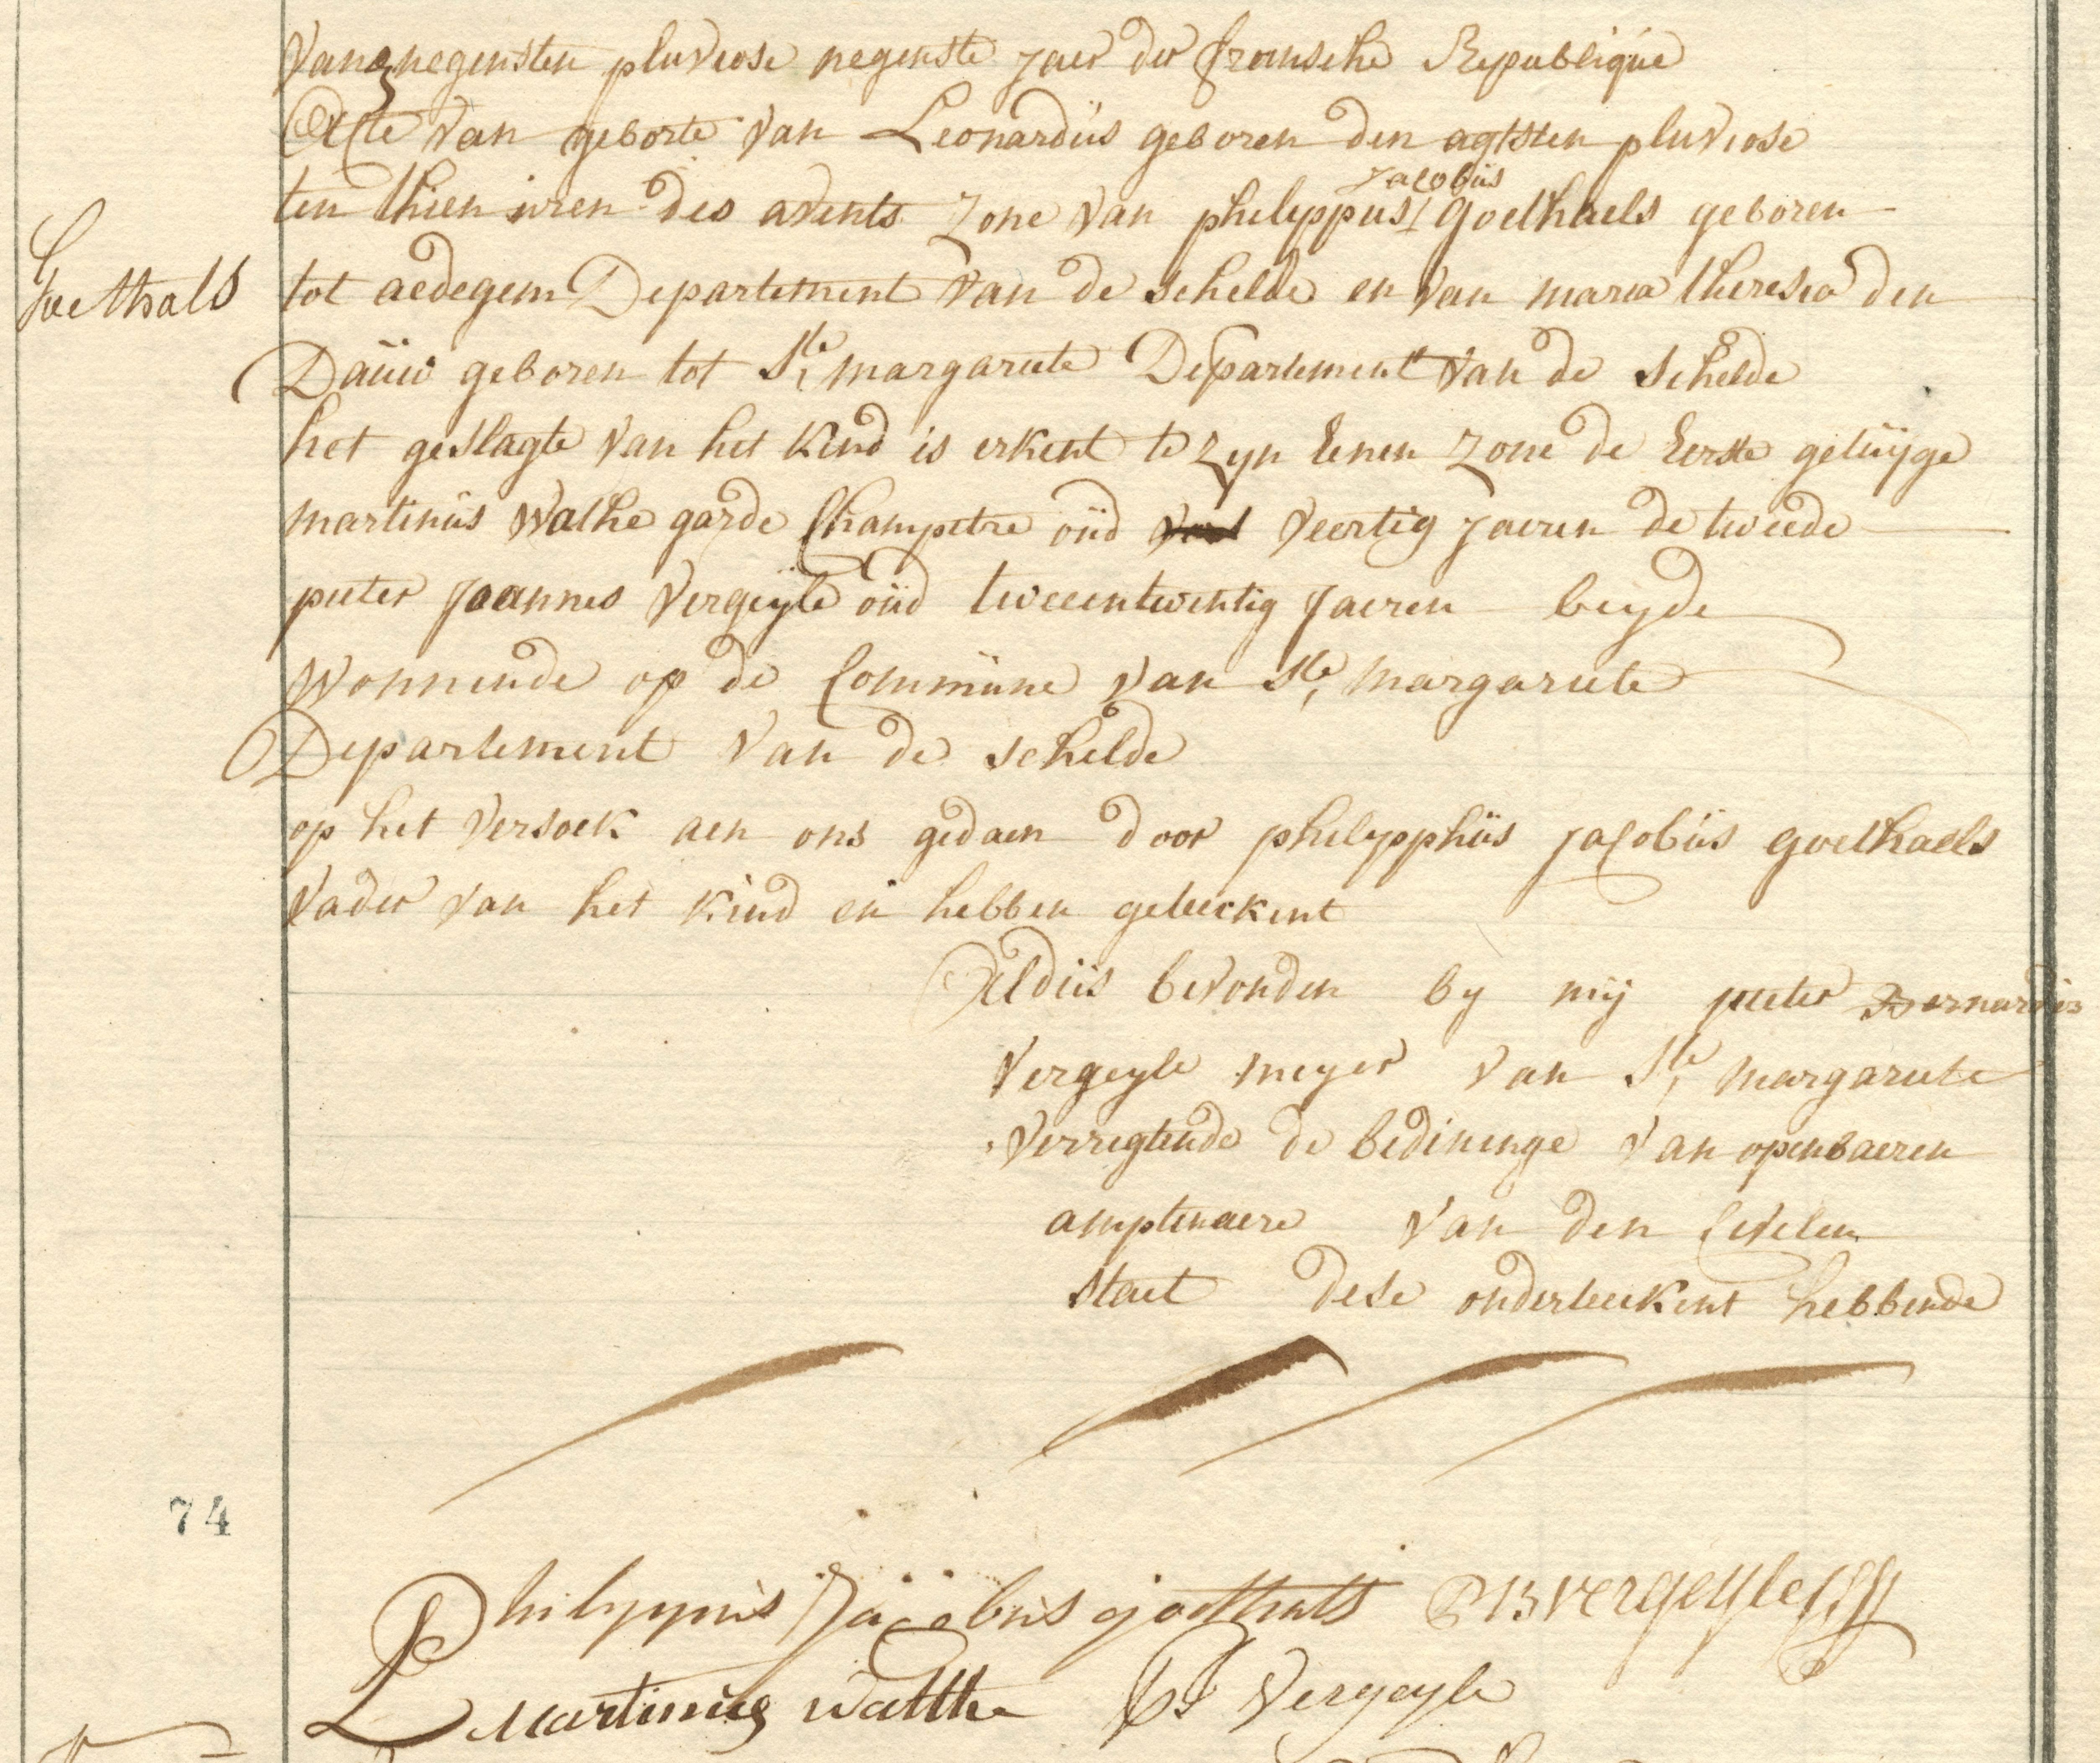 Van negensten pluviose negenste jaer der fransche Republique
Acte van geborte van Leonardus geboren den agtsten pluviose
Jacobus
ten thien uren des avents zone van phelyppus goethaels geboren
Goethals
tot aedegem Departement van de schelde en van maria theresia den
Dauw geboren tot Ste margariete Departement van de schelde
het geslagte van het kind is erkent te zyn eenen zone de Eerste getuyge
martinus Walhe garde Champetre oud veertig jaeren de tweede
peeter joannes Vergeyle oud tweeentwentig jaeren beyde
Wonnende op de Commune van Ste margariete
Departement van de schelde
op het versoek aen ons gedaen door phelypphus jacobus goethaels
Vader van het kind en hebben geteeckent
Aldus bevonden by mij peeter Bernardus
Vergeyle meyer van Ste margariete
verregtende de bedininge van openbaeren
amptenaere van den Civelen
staet dese onderteekent hebbende
74
Philyppus Jacobus goethals P B vergeyle
Martinus Walthe PJ Vergeyle